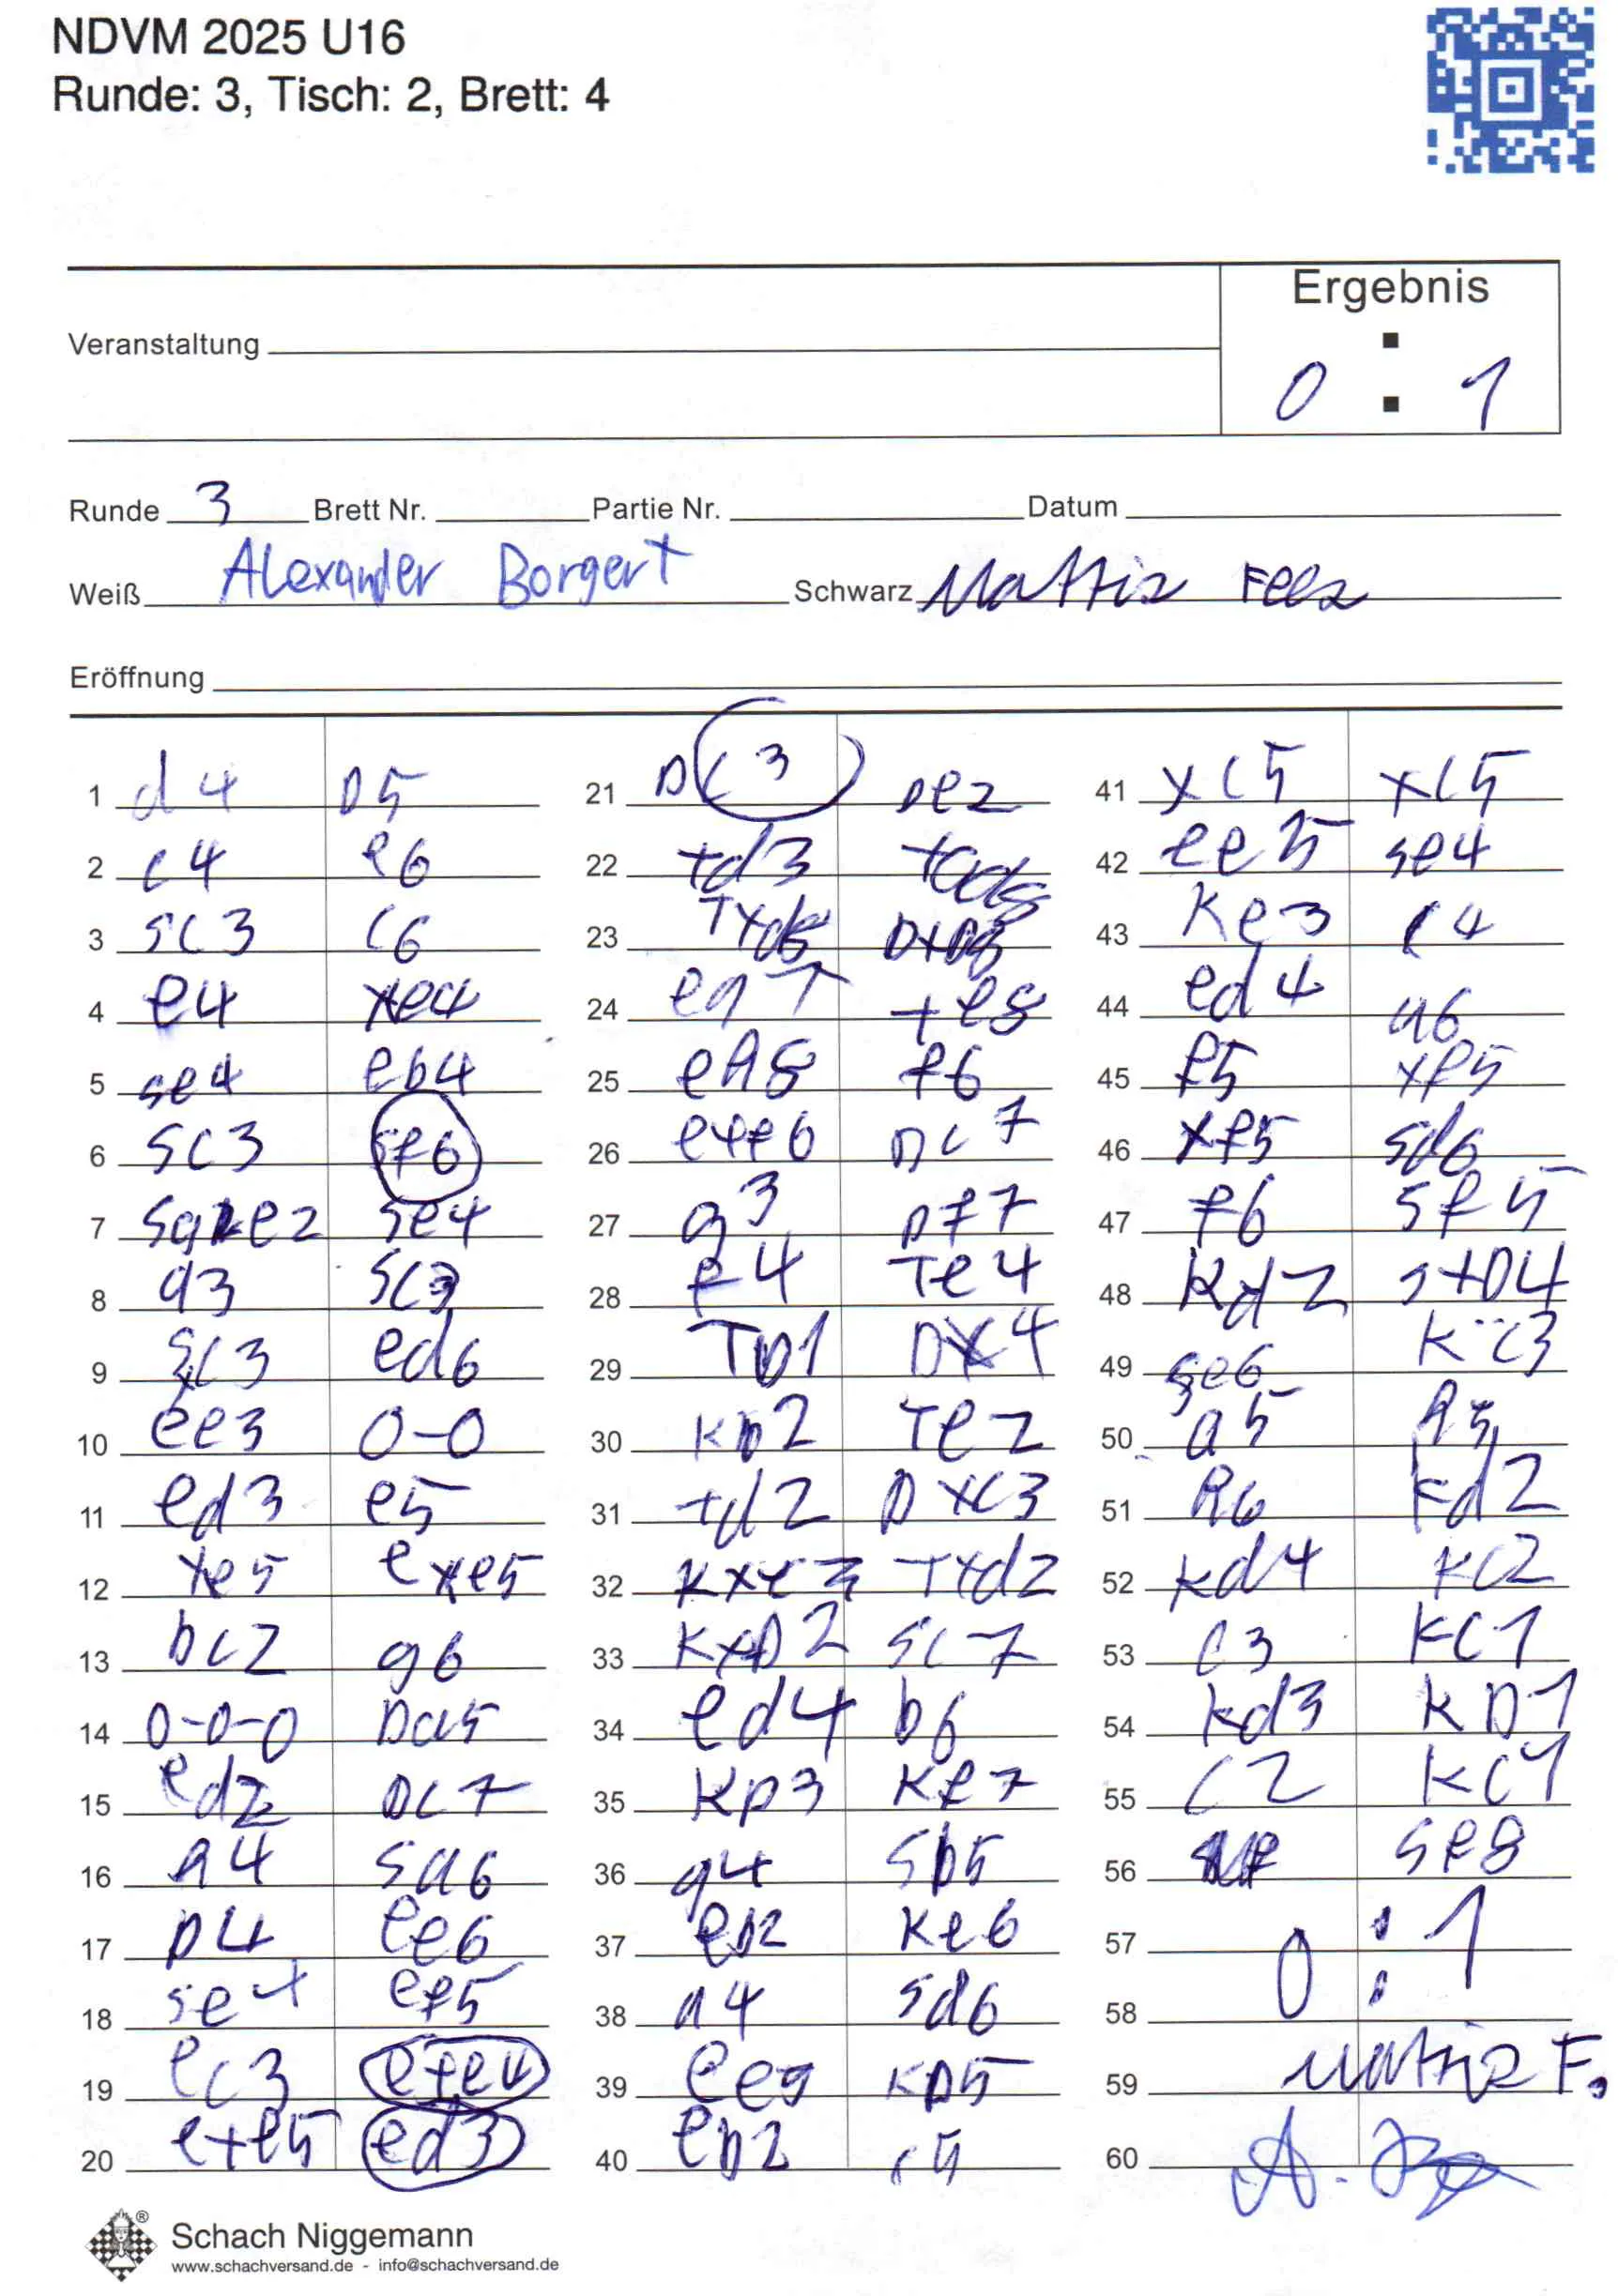 NDVM 2025 U16
Runde: 3, Tisch: 2, Brett: 4
Ergebnis
Veranstaltung
0 : 1
Runde 3 Brett Nr. Partie Nr. Datum
Weiß Alexander Borgert Schwarz Mattis Feez
Eröffnung
1 d4 D5
2 c4 e6
3 sc3 c6
4 e4 xe4
5 se4 eb4
6 sc3 sf6
7 sg1e2 se4
8 a3 sc3
9 sc3 ed6
10 ee3 0-0
11 ed3 e5
12 xe5 exe5
13 bc2 g6
14 0-0-0 Da5
15 ed2 Dc7
16 h4 sa6
17 D4 ee6
18 se4 ef5
19 ec3 exe4
20 exe5 ed3
21 Dc3 De2
22 td3 tads
23 Txd8 DxD8
24 ea7 te8
25 eA8 f6
26 exf6 Dc7
27 g3 Df7
28 f4 Te4
29 TD1 Dx4
30 KD2 Te2
31 td2 Dxc3
32 Kxc3 Txd2
33 KxD2 sc7
34 ed4 b6
35 KD3 Kf7
36 g4 sb5
37 eb2 Ke6
38 a4 sd6
39 ee5 KD5
40 eb2 c5
41 xc5 xc5
42 ee5 se4
43 Ke3 c4
44 ed4 a6
45 f5 xf5
46 xf5 sd6
47 f6 sf5
48 Kd2 sxD4
49 se6 Kc3
50 a5 h5
51 h6 Kd2
52 kd4 kc2
53 c3 Kc1
54 kd3 KD1
55 c2 Kc1
56 sf8
57 0 : 1
58
59 Mattis F.
60
Schach Niggemann
www.schachversand.de - info@schachversand.de